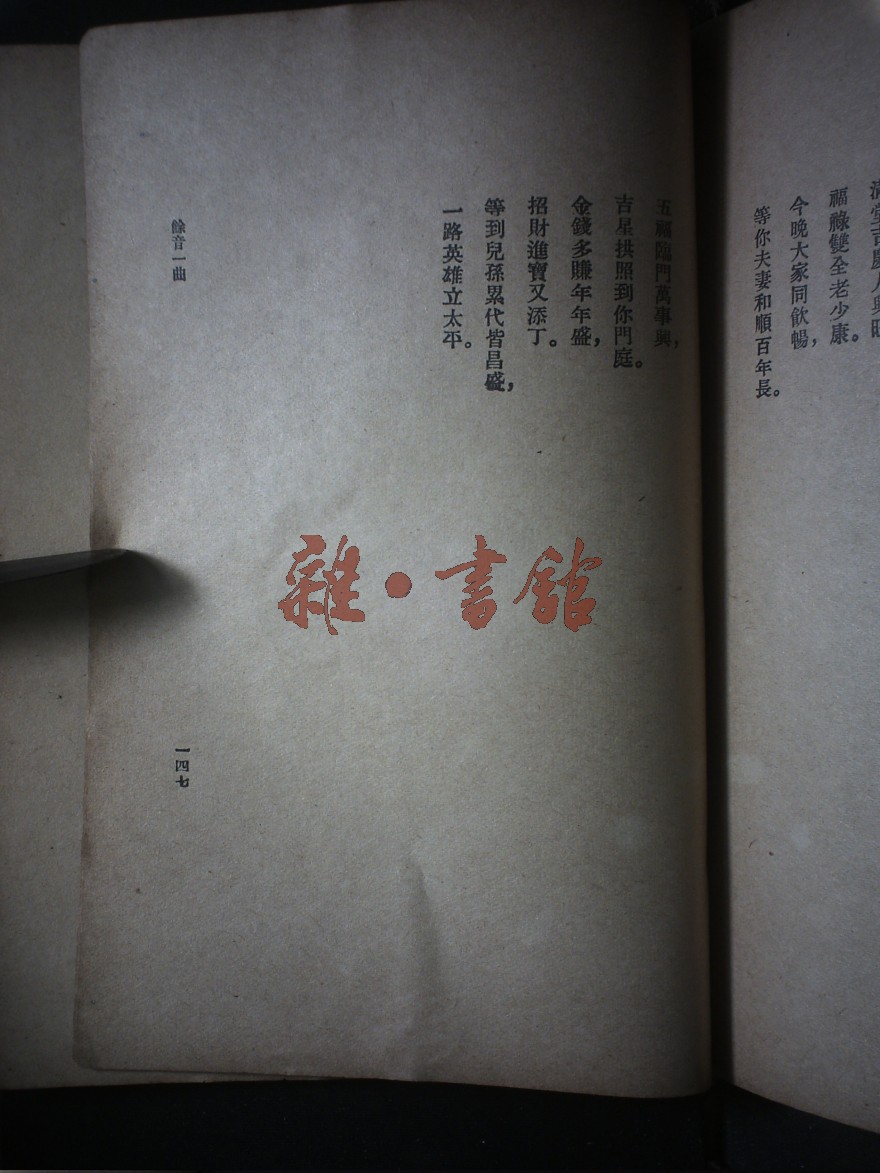 滿堂吉慶人興旺
福祿雙全老少康。
今晚大家同飲暢，
等你夫妻和順百年長。
五福臨門萬事興，
吉星拱照到你門庭。
金錢多賺年年盛，
招財進寶又添丁。
等到兒孫累代皆昌盛，
一路英雄立太平。
餘音一曲
一四七
雜·書館